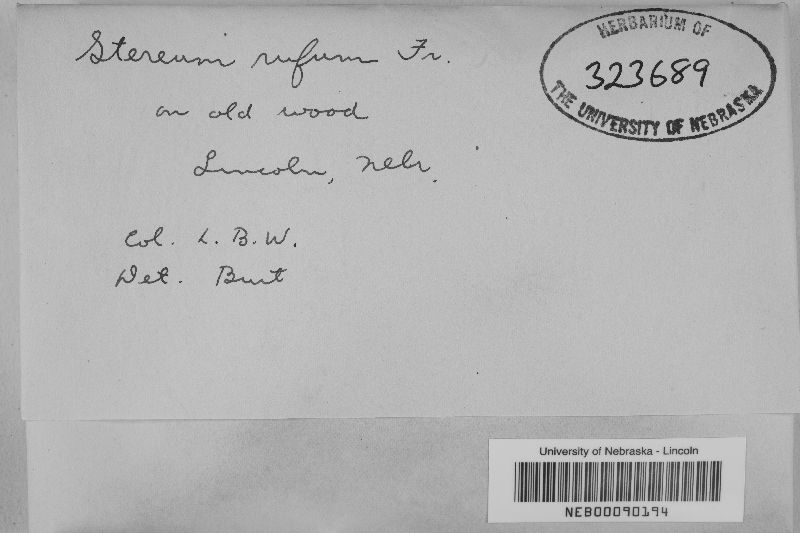 Stereum rufum Fr.
on old wood
Lincoln, Nebr.
Col. L. B. W.
Det. Burt
HERBARIUM OF
323689
THE UNIVERSITY OF NEBRASKA
University of Nebraska - Lincoln
NEB00090194